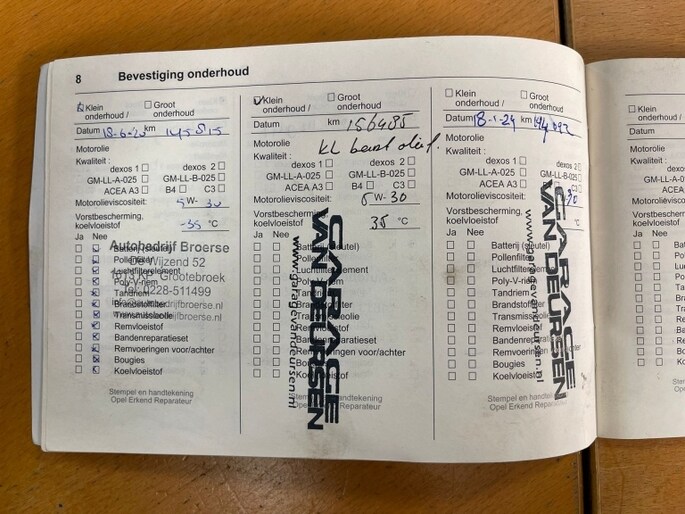 8 Bevestiging onderhoud
☑ Klein onderhoud / ☐ Groot onderhoud
Datum 18-6-20 km 145815
Motorolie
Kwaliteit :
dexos 1 ☐ dexos 2 ☐
GM-LL-A-025 ☐ GM-LL-B-025 ☐
ACEA A3 ☐ B4 ☐ C3 ☐
Motorolieviscositeit: 5 W- 30
Vorstbescherming,
koelvloeistof -35 °C
Ja Nee
Batterij (sleutel)
Pollenfilter
Luchtfilterelement
Poly-V-riem
Tandriem
Brandstoffilter
Transmissieolie
Remvloeistof
Bandenreparatieset
Remvoeringen voor/achter
Bougies
Koelvloeistof
Autobedrijf Broerse
De Wijzend 52
1613 KP Grootebroek
Tel. 0228-511499
Stempel en handtekening
Opel Erkend Reparateur
☑ Klein onderhoud / ☐ Groot onderhoud
Datum km 156485
Motorolie
Kwaliteit :
dexos 1 ☐ dexos 2 ☐
GM-LL-A-025 ☐ GM-LL-B-025 ☐
ACEA A3 ☐ B4 ☐ C3 ☐
Motorolieviscositeit: 5 W- 30
Vorstbescherming,
koelvloeistof 35 °C
Ja Nee
Batterij (sleutel)
Pollenfilter
Luchtfilterelement
Poly-V-riem
Tandriem
Brandstoffilter
Transmissieolie
Remvloeistof
Bandenreparatieset
Remvoeringen voor/achter
Bougies
Koelvloeistof
GARAGE
VAN DEURSEN
www.garagevandeursen.nl
Stempel en handtekening
Opel Erkend Reparateur
☐ Klein onderhoud / ☐ Groot onderhoud
Datum 18-1-24 km
Motorolie
Kwaliteit :
dexos 1 ☐ dexos 2 ☐
GM-LL-A-025 ☐ GM-LL-B-025 ☐
ACEA A3 ☐ B4 ☐ C3 ☐
Motorolieviscositeit: 30
Vorstbescherming,
koelvloeistof °C
Ja Nee
Batterij (sleutel)
Pollenfilter
Luchtfilterelement
Poly-V-riem
Tandriem
Brandstoffilter
Transmissieolie
Remvloeistof
Bandenreparatieset
Remvoeringen voor/achter
Bougies
Koelvloeistof
GARAGE
VAN DEURSEN
www.garagevandeursen.nl
Stempel en handtekening
Opel Erkend Reparateur
☐ Klein
onderhoud
Datum
Motorolie
Kwaliteit :
Motorolie
Vorstbescherm
koelvloeistof
Ja Nee